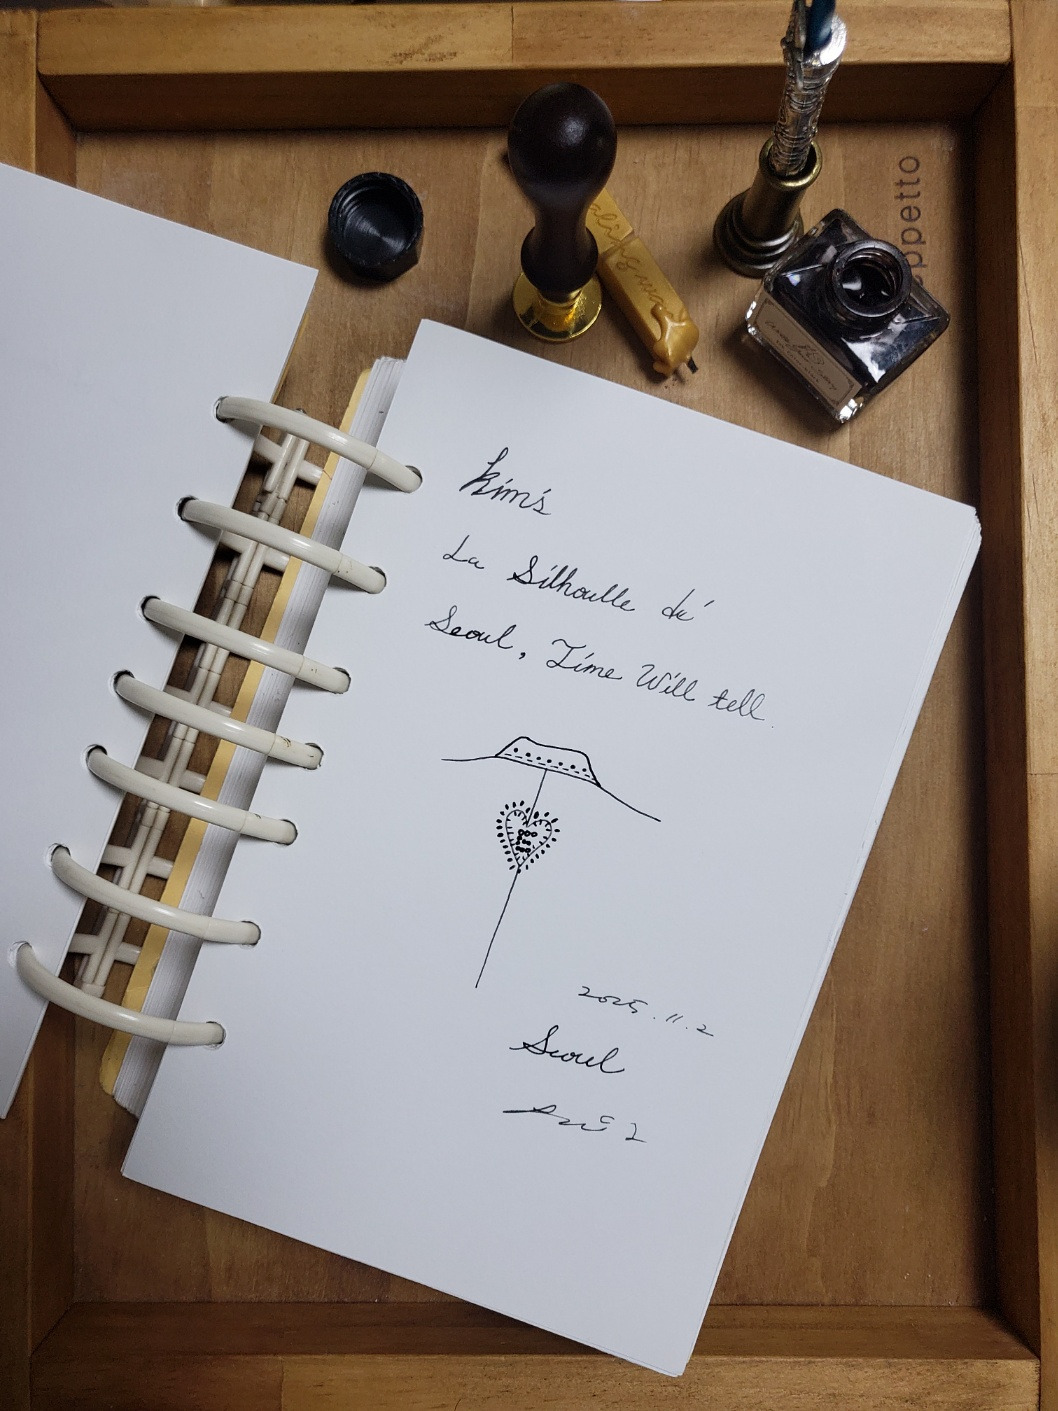 Kim's
La Silhoulle du'
Seoul, Time Will tell.
2025.11.2
Seoul
ppetto